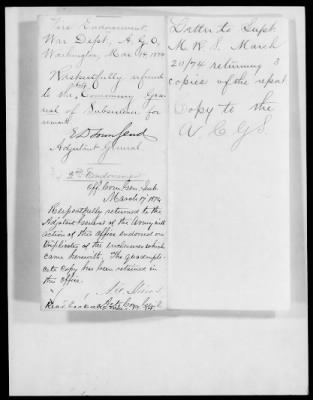 1st Endorsement.
War Dept., A.G.O.,
Washington, Mar 14, 1874
Respectfully referred
to the Commissary Gen-
eral of Subsistence for
remark.
E D Townsend
Adjutant General.
2nd Endorsement
Off. Com. Gen. Sub.
March 17, 1874
Respectfully returned to the
Adjutant General of the Army with
action of this office endorsed on
triplicate of the inclosures which
came herewith. The quadrupli-
cate copy has been retained in
this office.
Letter to Supt.
M. W. S. March
20/74 returning 3
copies of the report
Copy to the
A C G S.